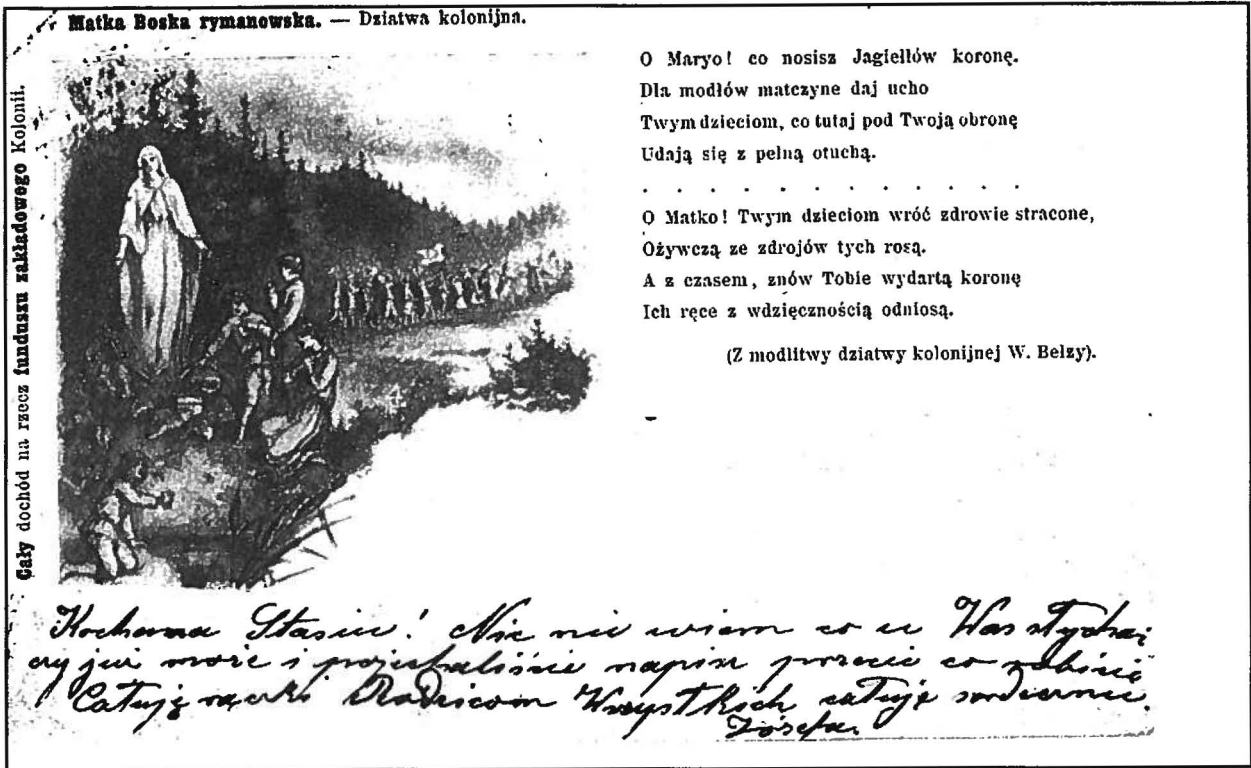 Matka Boska rymanowska. — Dziatwa kolonijna.
Cały dochód na rzecz funduszu zakładowego Kolonii.
O Maryo! co nosisz Jagiellów koronę.
Dla modłów matczyne daj ucho
Twym dzieciom, co tutaj pod Twoją obronę
Udają się z pełną otuchą.
. . . . . . . . . . . .
O Matko! Twym dzieciom wróć zdrowie stracone,
Ożywczą ze zdrojów tych rosą.
A z czasem, znów Tobie wydartą koronę
Ich ręce z wdzięcznością odniosą.
(Z modlitwy dziatwy kolonijnej W. Bełzy).
Kochana Stasiu! Nic nie wiem co u Was słychać
czy już może i pojechaliście napisz przecie co robicie
Całuję rączki Rodzicom Wszystkich całuję serdecznie.
Józefa.